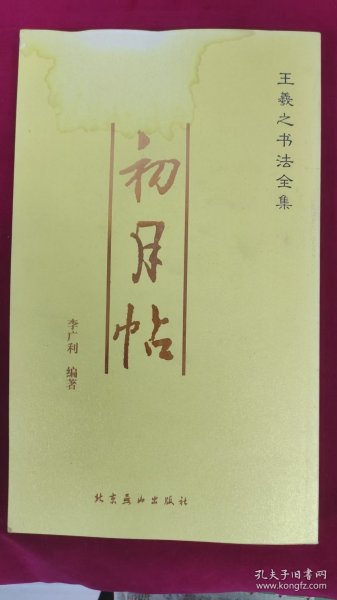 王羲之书法全集
初月帖
李广利 编著
北京燕山出版社
孔夫子旧书网